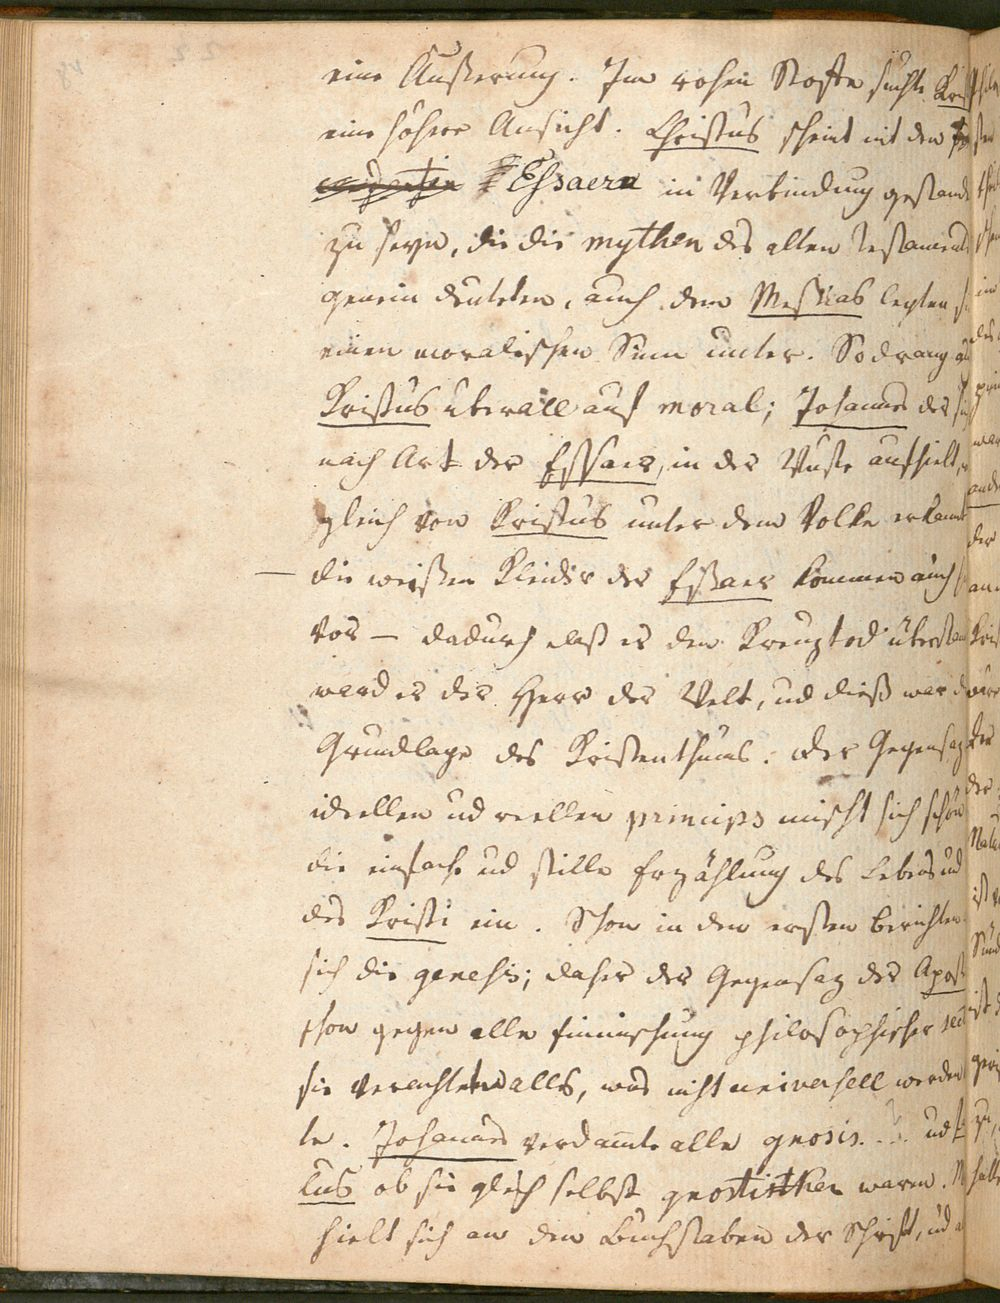 eine Äußerung. Im rohen Stoffe suchte Kris
eine höhere Ansicht. Christus scheint mit den
Essaern in Verbindung gestand
zu seyn, die die mythen des alten Testaments
gemein deuteten, auch dem Messias legten s
einen moralischen Sinn unter. So drang au
Kristus uberall auf moral; Johannes der sich
nach Art der Essaer, in der Wuste aufhielt,
gleich von Kristus unter dem Volke erkannt
— die weißen Kleider der Essaer kommen auch
vor — dadurch daß er den Kreuztod überstan
ward er der Herr der Welt, ud dieß war d
Grundlage des Kristenthums. Der Gegensaz
ideellen ud reellen princips mischt sich schon
die einfache ud stille Erzählung des Lebens ud
des Kristi ein. Schon in den ersten Berichten
sich die genesis; daher der Gegensaz der Apost
schon gegen alle Einmischung philosophischer
sie verachten alles, was nicht universell werden
te. Johannes verdamte alle gnosis. ud
lus ob sie gleich selbst gnostiker waren. M
hielt sich an den Buchstaben der Schrift, ud a